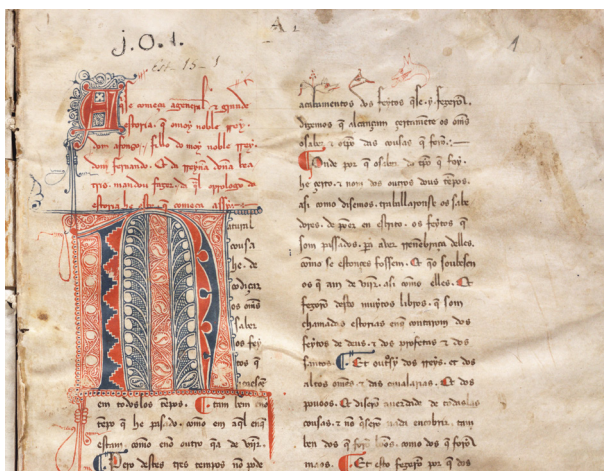 j. O. 1.
A 1
1
est. 15 - 1
estoria. que o moy noble Rey
dom afonso; fillo do moy noble Rey
dom fernando. Et da Reyna dona bea
tris. mandou fazer. prologo da
estoria he este que começa assy
Natural
cousa
he. de
os omẽs
saber
os fey
tos q̃
em todoslos tẽpos. tam ben eno
tẽpo q̃ he pasado. como em aql̃ enq̃
estam. como eno outro q̃a de vĩjr.
Pero destes tres tempos nõ pode
dos feytos q̃se y fezerõ.
dizemos q̃ alcançam çertamẽte os omẽs
o saber ⁊ o tp̃o das cousas q̃ forõ.
Onde por q̃ o saber do tp̃o q̃ foy.
he çerto. ⁊ nom dos outros dous tẽpos.
asi como disemos. traballaronse os sabe
dores. de põer en escrito. os feytos q̃
som passados. pa aver rrenẽbrãça delles.
como se estonçes fossem. Et q̃o soubesen
os q̃ am de vĩjr. asi como elles. Et
fezerõ desto muytos libros. q̃ som
chamados estorias enq̃ contarom dos
feytos de deus. ⁊ dos profetas ⁊ dos
santos. Et outrosy dos rreys. et dos
altos omẽs. ⁊ das caualarias. Et dos
poboos. Et diserõ auerdade de todaslas
cousas. ⁊ nõ q̃serõ nada encobrir. tam
ben dos q̃ forõ bõos. como dos q̃ forõ
maos. Et esto fezerõ por q̃ dos